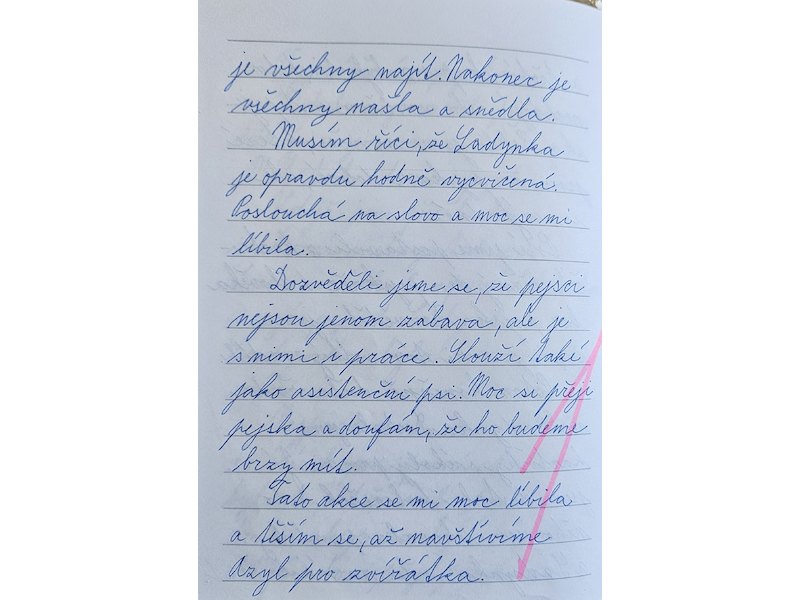 je všechny najít. Nakonec je
všechny našla a snědla.
Musím říci, že Ladynka
je opravdu hodně vycvičená.
Poslouchá na slovo a moc se mi
líbila.
Dozvěděli jsme se, že pejsci
nejsou jenom zábava, ale je
s nimi i práce. Slouží také
jako asistenční psi. Moc si přeji
pejska a doufám, že ho budeme
brzy mít.
Tato akce se mi moc líbila
a těším se, až navštívíme
Azyl pro zvířátka.